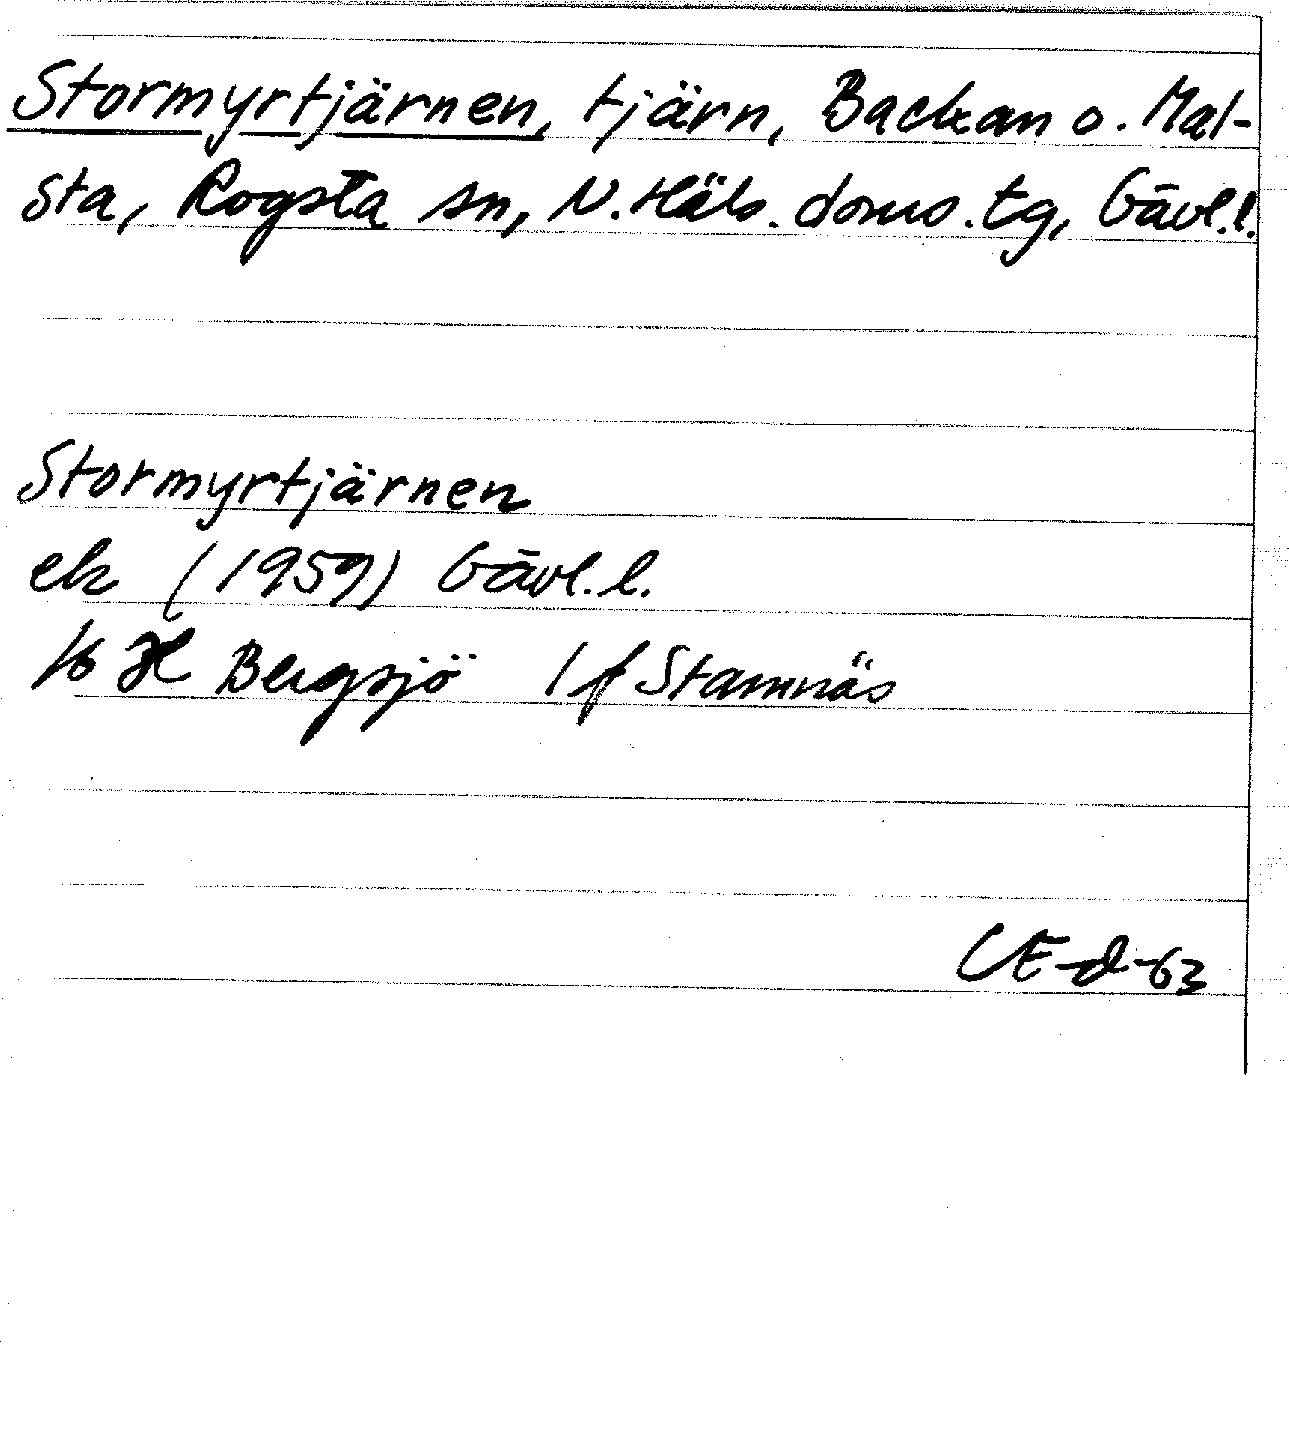 Stormyrtjärnen, tjärn, Backan o. Mal-
sta, Rogsta sn, N. Häls. doms. tg, Gävl. l.
Stormyrtjärnen
ek (1959) Gävl. l.
16 H Bergsjö 1 f Stamnäs
CE-d-63